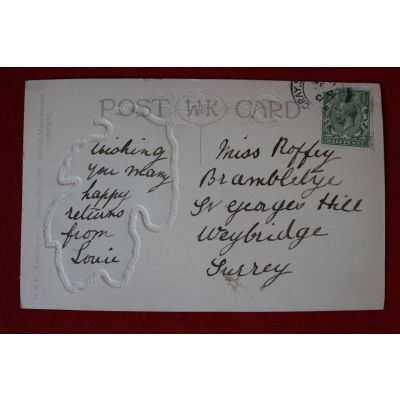 POST W&K CARD
Wishing
you many
happy
returns
from
Louie
Miss Roffey
Brambletye
St Georges Hill
Weybridge
Surrey